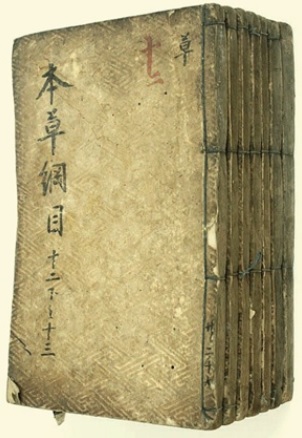 草
十二
本草綱目 十二下之十三